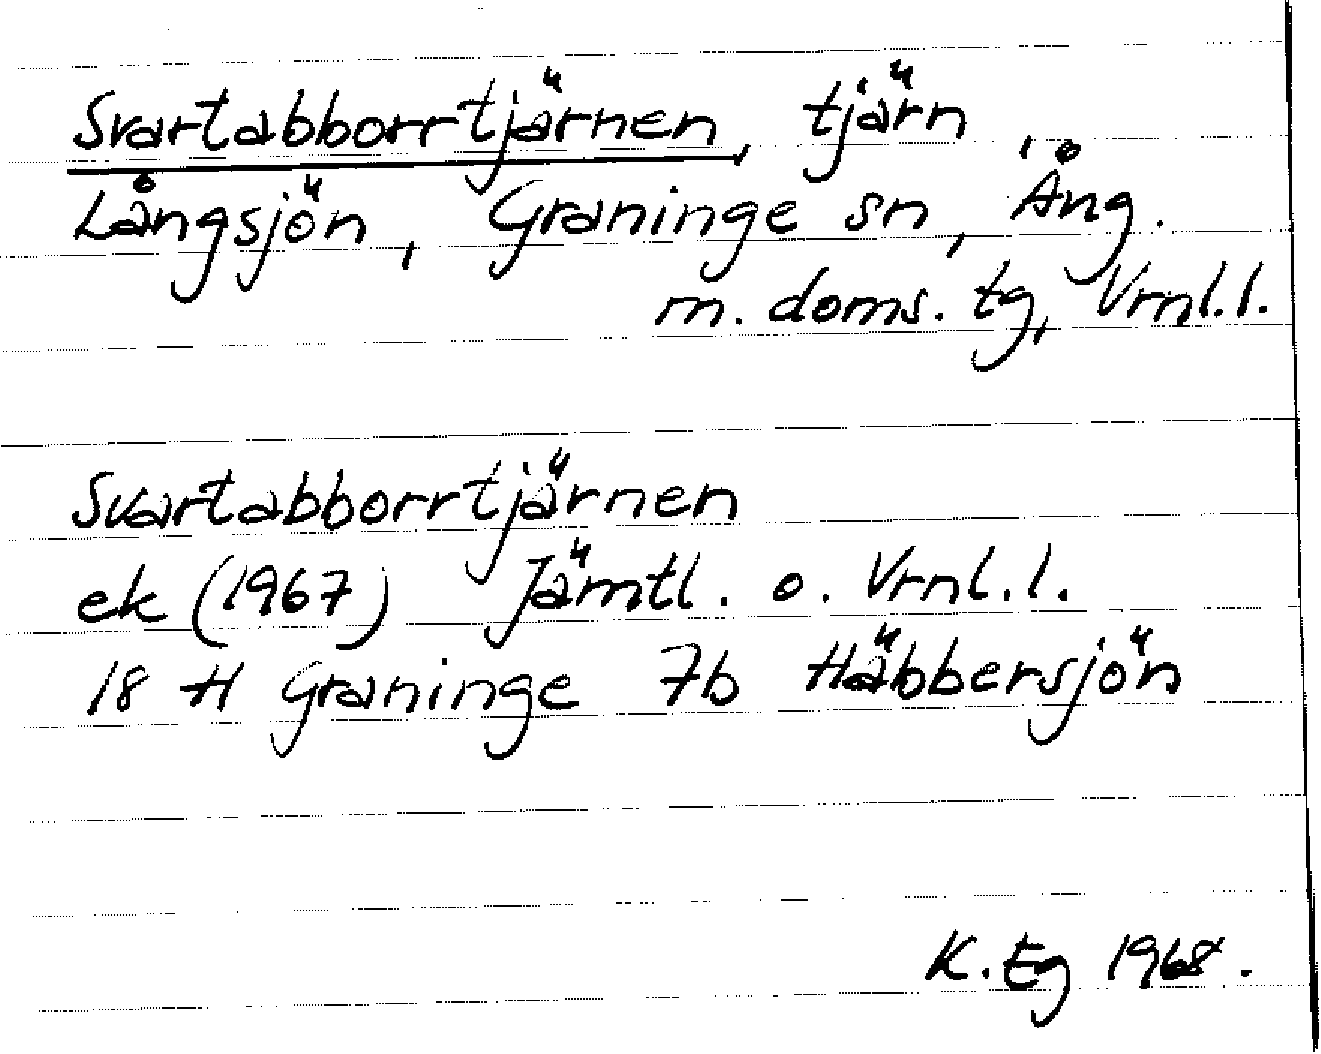 Svartabborrtjärnen, tjärn
Långsjön, Graninge sn, Ång.
m. doms. tg, Vrnl.l.
Svartabborrtjärnen
ek (1967) Jämtl. o. Vrnl.l.
18 H Graninge 7b Häbbersjön
K. Eg 1968.